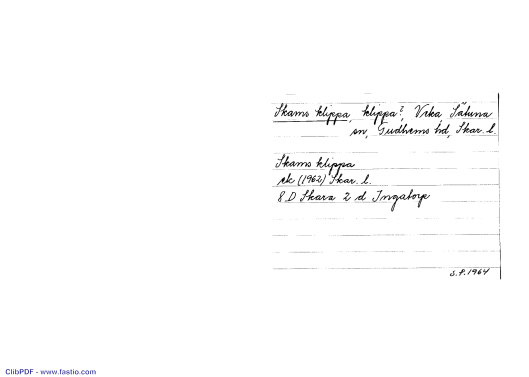 Skams klippa, klippa?, Vrka, Såtuna
sn, Gudhems hd, Skar. l.
Skams klippa
ek (1962) Skar. l.
8 D Skara 2 d Ingatorp
S.F. 1964
ClibPDF - www.fastio.com